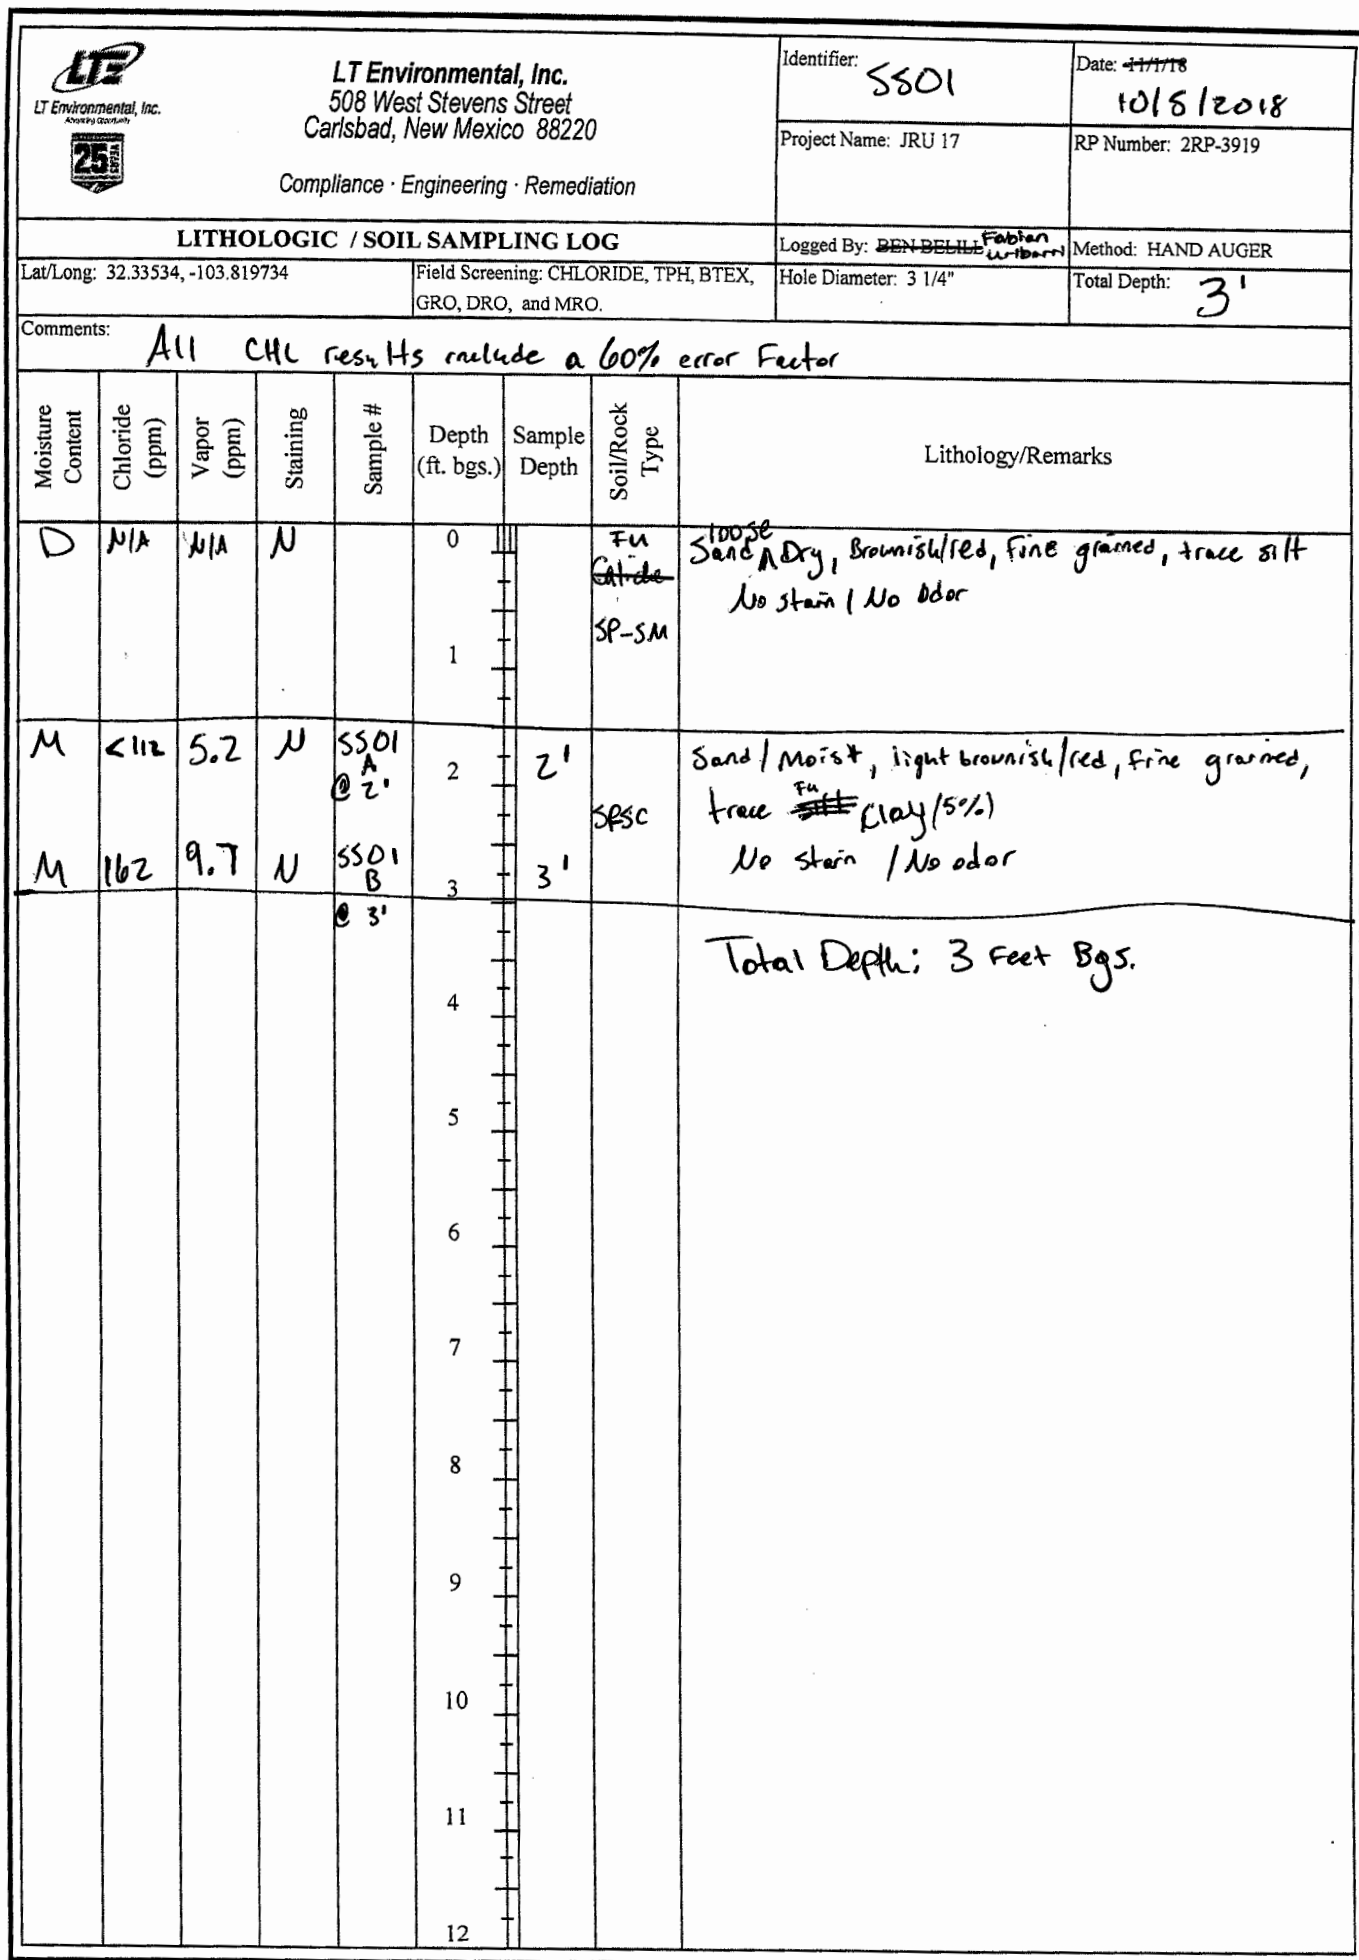 LTE
LT Environmental, Inc.
Advancing Opportunity
25 YEARS
LT Environmental, Inc.
508 West Stevens Street
Carlsbad, New Mexico 88220
Compliance · Engineering · Remediation
Identifier: SS01
Date: 11/1/18
10/5/2018
Project Name: JRU 17
RP Number: 2RP-3919
LITHOLOGIC / SOIL SAMPLING LOG
Logged By: BEN BELILL Fabian Uribarri
Method: HAND AUGER
Lat/Long: 32.33534, -103.819734
Field Screening: CHLORIDE, TPH, BTEX,
GRO, DRO, and MRO.
Hole Diameter: 3 1/4"
Total Depth: 3'
Comments: All CHL results include a 60% error Factor
Moisture Content
Chloride (ppm)
Vapor (ppm)
Staining
Sample #
Depth (ft. bgs.)
Sample Depth
Soil/Rock Type
Lithology/Remarks
D N/A N/A N 0 FU Sand loose Dry, Brownish/red, Fine grained, trace silt
Caliche No stain / No odor
SP-SM
1
M <112 5.2 N SS01 A @ 2' 2 2' Sand / Moist, light brownish/red, fine grained,
SP-SC trace silt FU Clay (5%)
M 162 9.7 N SS01 B @ 3' 3 3' No stain / No odor
Total Depth: 3 Feet Bgs.
4
5
6
7
8
9
10
11
12